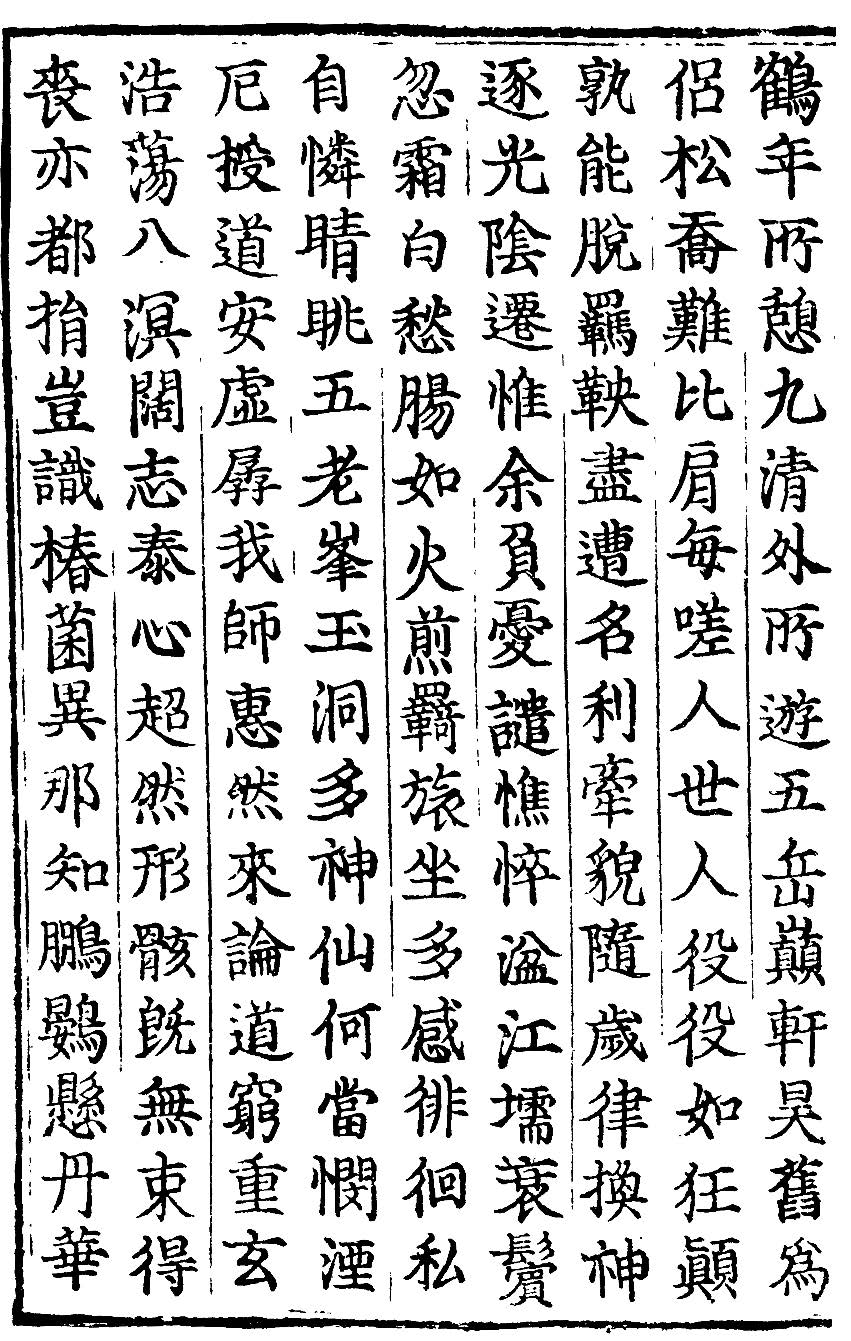 鶴年所憩九清外所遊五岳巔軒昊舊為
侶松喬難比肩每嗟人世人役役如狂顛
孰能脫羈鞅盡遭名利牽貌隨歲律換神
逐光陰遷惟余負憂譴憔悴湓江壖衰鬢
忽霜白愁腸如火煎羇旅坐多感徘徊私
自憐晴眺五老峯玉洞多神仙何當憫湮
厄授道安虛孱我師惠然來論道窮重玄
浩蕩八溟闊志泰心超然形骸既無束得
喪亦都捐豈識椿菌異那知鵬鷃懸丹華